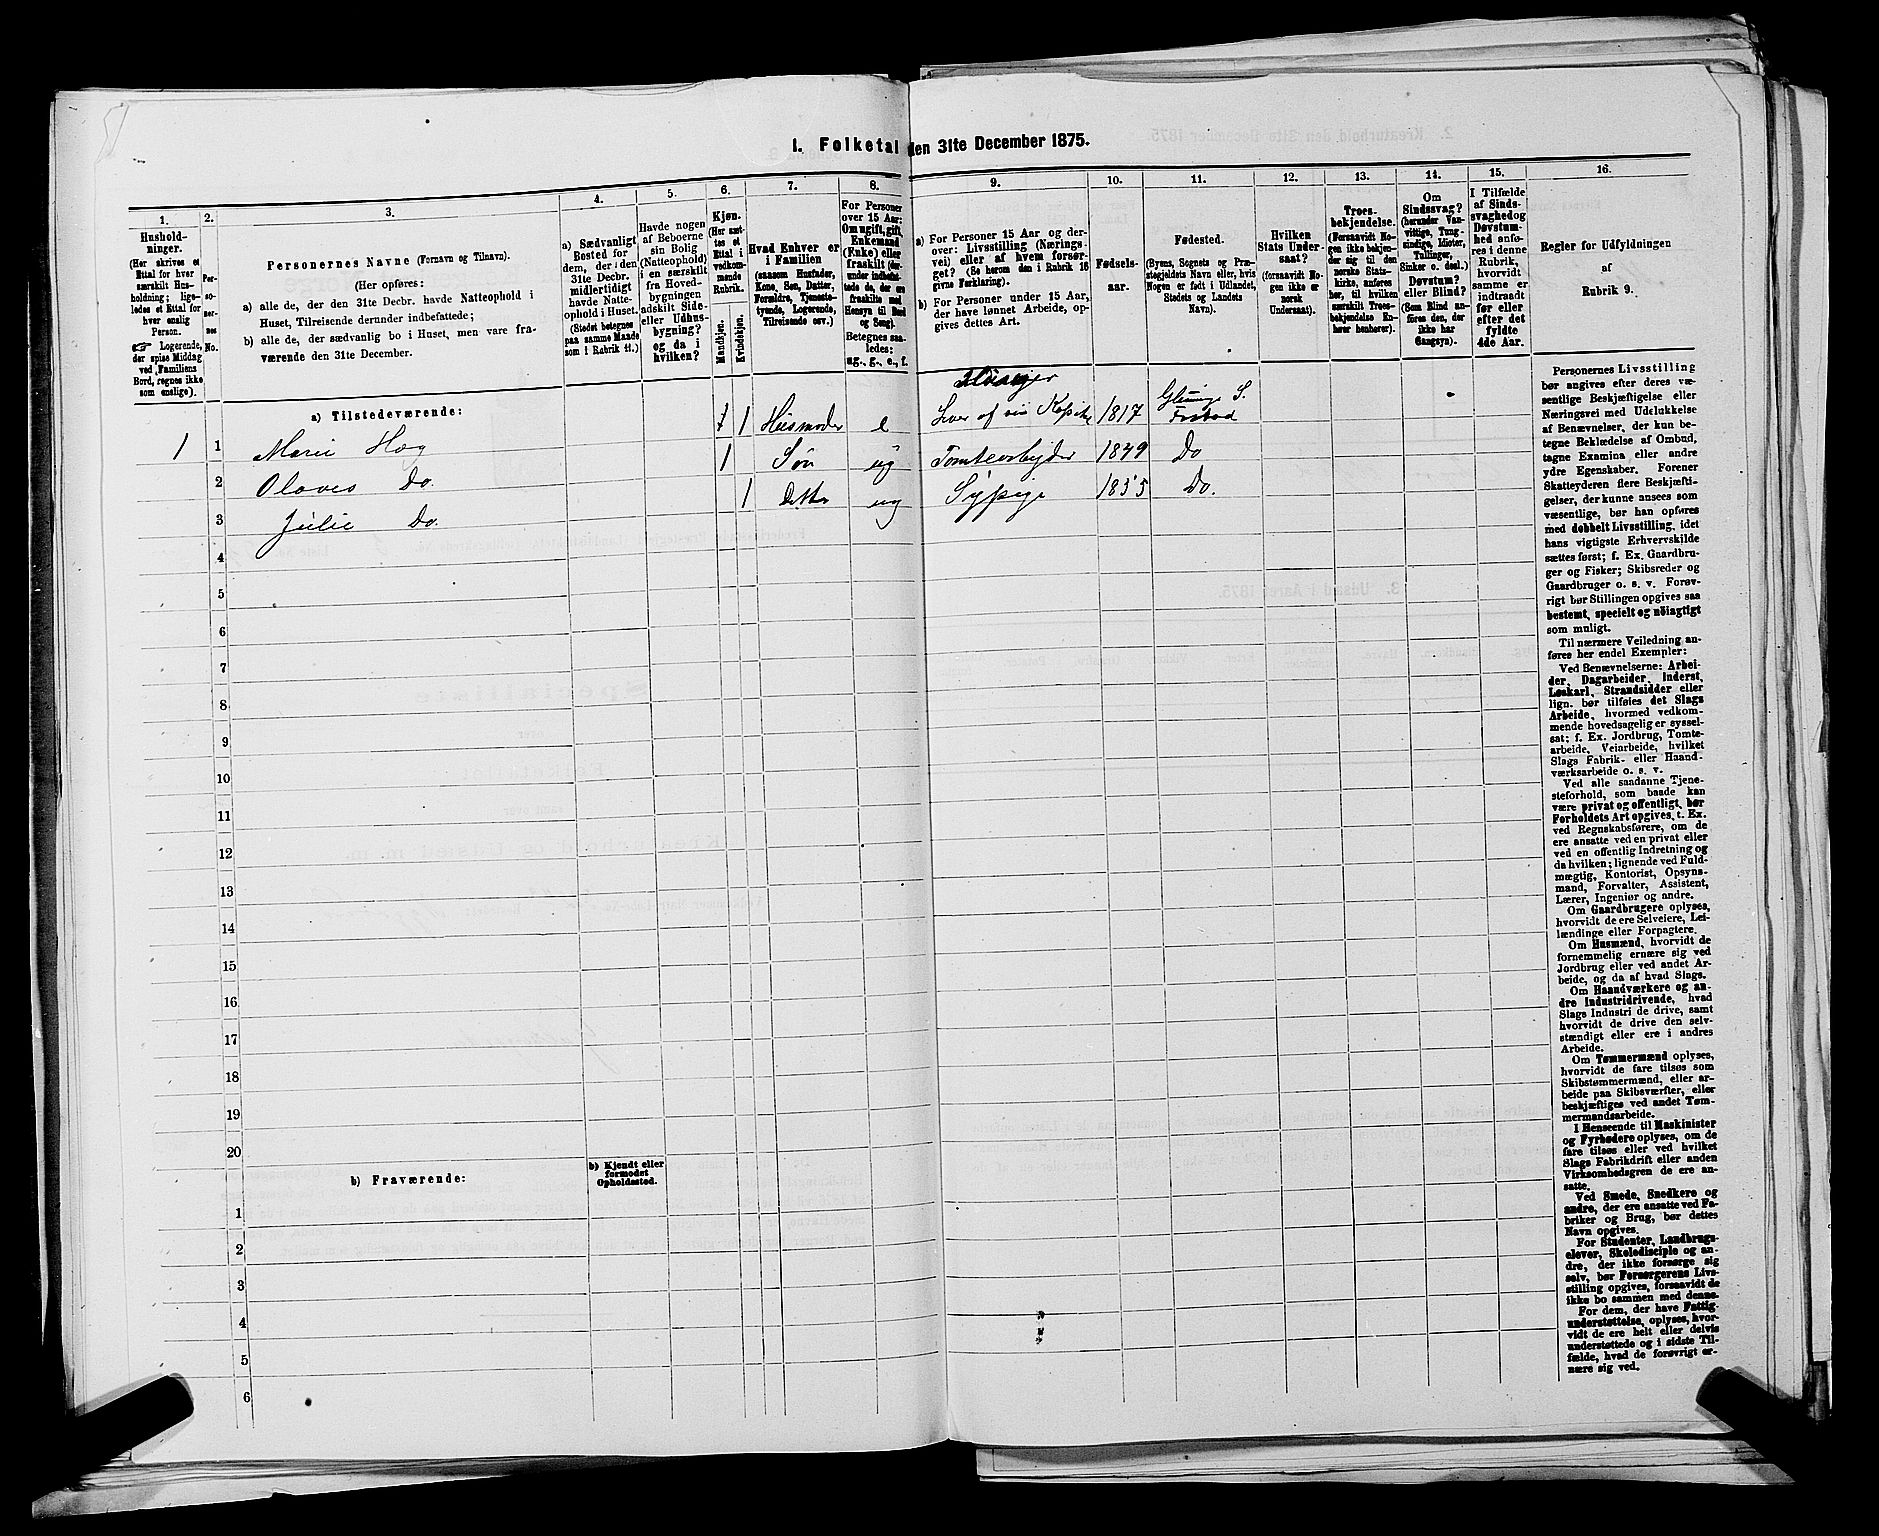 1. Folketal den 31te December 1875.
1.
Hushold-
ninger.
(Her skrives et
Ettal for hver
særskilt Hus-
holdning; lige-
ledes et Ettal for
hver enslig
Person.
☞ Logerende,
der spise Middag
ved Familiens
Bord, regnes ikke
som enslige).
2.
Per-
so-
ner-
nes
No.
3.
Personernes Navne (Fornavn og Tilnavn).
(Her opføres:
a) alle de, der den 31te Decbr. havde Natteophold i
Huset, Tilreisende derunder indbefattede;
b) alle de, der sædvanlig bo i Huset, men vare fra-
værende den 31te December.
4.
a) Sædvanligt
Bosted for
dem, der i den
31te Decbr.
midlertidigt
havde Natte-
ophold i Huset.
(Stedet betegnes
paa samme Maade
som i Rubrik 11.)
5.
Havde nogen
af Beboerne
sin Bolig
(Natteophold)
i en særskilt
fra Hoved-
bygningen
adskilt Side-
eller Udhus-
bygning?
og da i
hvilken?
6.
Kjøn.
(Her sæt-
tes et
Ettal i
vedkom-
mende
Rubrik.
Mandkjøn.
Kvindekjøn.
7.
Hvad Enhver er
i Familien
(saasom Husfader,
Kone, Søn, Datter,
Forældre, Tjeneste-
tyende, Logerende,
Tilreisende osv.)
8.
For Personer
over 15 Aar:
Om ugift, gift,
Enkemand
(Enke) eller
fraskilt (der-
under indbefat-
tede de, der ere
fraskilte med
Hensyn til Bord
og Seng).
Betegnes saa-
ledes:
ug., g., e., f.
9.
a) For Personer 15 Aar og der-
over: Livsstilling (Nærings-
vei) eller af hvem forsør-
get? (Se herom den i Rubrik 16
givne Forklaring).
b) For Personer under 15 Aar,
der have lønnet Arbeide, op-
gives dettes Art.
10.
Fødsels-
aar.
11.
Fødested.
(Byens, Sognets og Præ-
stegjeldets Navn eller, hvis
Nogen er født i Udlandet,
Stedets og Landets
Navn).
12.
Hvilken
Stats Under-
saat?
(forsaavidt No-
gen ikke er
norsk
Undersaat).
13.
Troes-
bekjendelse.
(Forsaavidt No-
gen ikke bekjen-
der sig til den
norske Stats-
kirke, anføres
her, til hvilken
særskilt Troes-
bekjendelse En-
hver henhører).
14.
Om
Sindssvag?
(herunder Van-
vittige, Tung-
sindige, Idioter,
Tullinger,
Sinker o. desl.)
Døvstum?
eller Blind?
(Som Blind an-
føres den, der
ikke har
Gangsyn).
15.
I Tilfælde
af Sinds-
svaghed og
Døvstum-
hed anfø-
res i denne
Rubrik,
hvorvidt
samme er
indtraadt
før eller
efter det
fyldte
4de Aar.
16.
Regler for Udfyldningen
af
Rubrik 9.
a) Tilstedeværende:
1 1 Marie Høeg 1 Husmoder e Lever af sin Kapital 1817 Glemmige S.
2 Olaves Do. 1 Søn ug Tomtearbejder 1849 Do
3 Julie Do. 1 Datter ug Sypige 1855 Do.
4
5
6
7
8
9
10
11
12
13
14
15
16
17
18
19
20
b) Fraværende:
b) Kjendt eller
formodet
Opholdssted.
1
2
3
4
5
6
Personernes Livsstilling
bør angives efter deres væ-
sentlige Beskjæftigelse eller
Næringsvei med Udelukkelse
af Benævnelser, der kun be-
tegne Beklædelse af Ombud,
tagne Examina eller andre
ydre Egenskaber. Forener
Skatteyderen flere Beskjæfti-
gelser, der kunne ansees som
væsentlige, bør han opføres
med dobbelt Livsstilling, idet
hans vigtigste Erhvervskilde
sættes først; f. Ex. Gaardbru-
ger og Fisker; Skibsreder og
Gaardbruger o. s. v. Forøv-
rigt bør Stillingen opgives saa
bestemt, specielt og nöiagtigt
som muligt.
Til nærmere Veiledning an-
føres her endel Exempler:
Ved Benævnelserne: Arbei-
der, Dagarbeider, Inderst,
Løskarl, Strandsidder eller
lign. bør tilføies det Slags
Arbeide, hvormed vedkom-
mende hovedsagelig er syssel-
sat; f. Ex. Jordbrug, Tomte-
arbeide, Veiarbeide, hvilket
Slags Fabrik- eller Haand-
værksarbeide o. s. v.
Ved alle saadanne Tjene-
steforhold, som baade kan
være privat og offentligt, bør
Forholdets Art opgives, t. Ex.
ved Regnskabsførere, om de
ere ansatte ved en privat eller
ved en offentlig Indretning og
da hvilken; lignende ved Fuld-
mægtig, Kontorist, Opsyns-
mand, Forvalter, Assistent,
Lærer, Ingeniør og andre.
Om Gaardbrugere oplyses,
hvorvidt de ere Selveiere, Lei-
lændinge eller Forpagtere.
Om Husmænd, hvorvidt de
fornemmelig ernære sig ved
Jordbrug eller ved andet Ar-
beide, og da af hvad Slags.
Om Haandværkere og an-
dre Industridrivende, hvad
Slags Industri de drive, samt
hvorvidt de drive den selv-
stændigt eller ere i andres
Arbeide.
Om Tømmermænd oplyses,
hvorvidt de fare tilsøs som
Skibstømmermænd, eller ar-
beide paa Skibsværfter, eller
beskjæftiges ved andet Tøm-
mermandsarbeide.
I Henseende til Maskinister
og Fyrbødere oplyses, om de
fare tilsøs eller ved hvilket
Slags Fabrikdrift eller anden
Virksomhedsgren de ere an-
satte.
Ved Smede, Snedkere og
andre, der ere ansatte ved Fa-
briker og Brug, bør dettes
Navn opgives.
For Studenter, Landbrugs-
elever, Skoledisciple og an-
dre, der ikke forsørge sig
selv, bør Forsørgerens Livs-
stilling opgives, forsaavidt de
ikke bo sammen med denne.
For dem, der have Fattig-
understøttelse, oplyses, hvor-
vidt de ere helt eller delvis
understøttede og i sidste Til-
fælde, hvad de forøvrigt er-
nære sig ved.